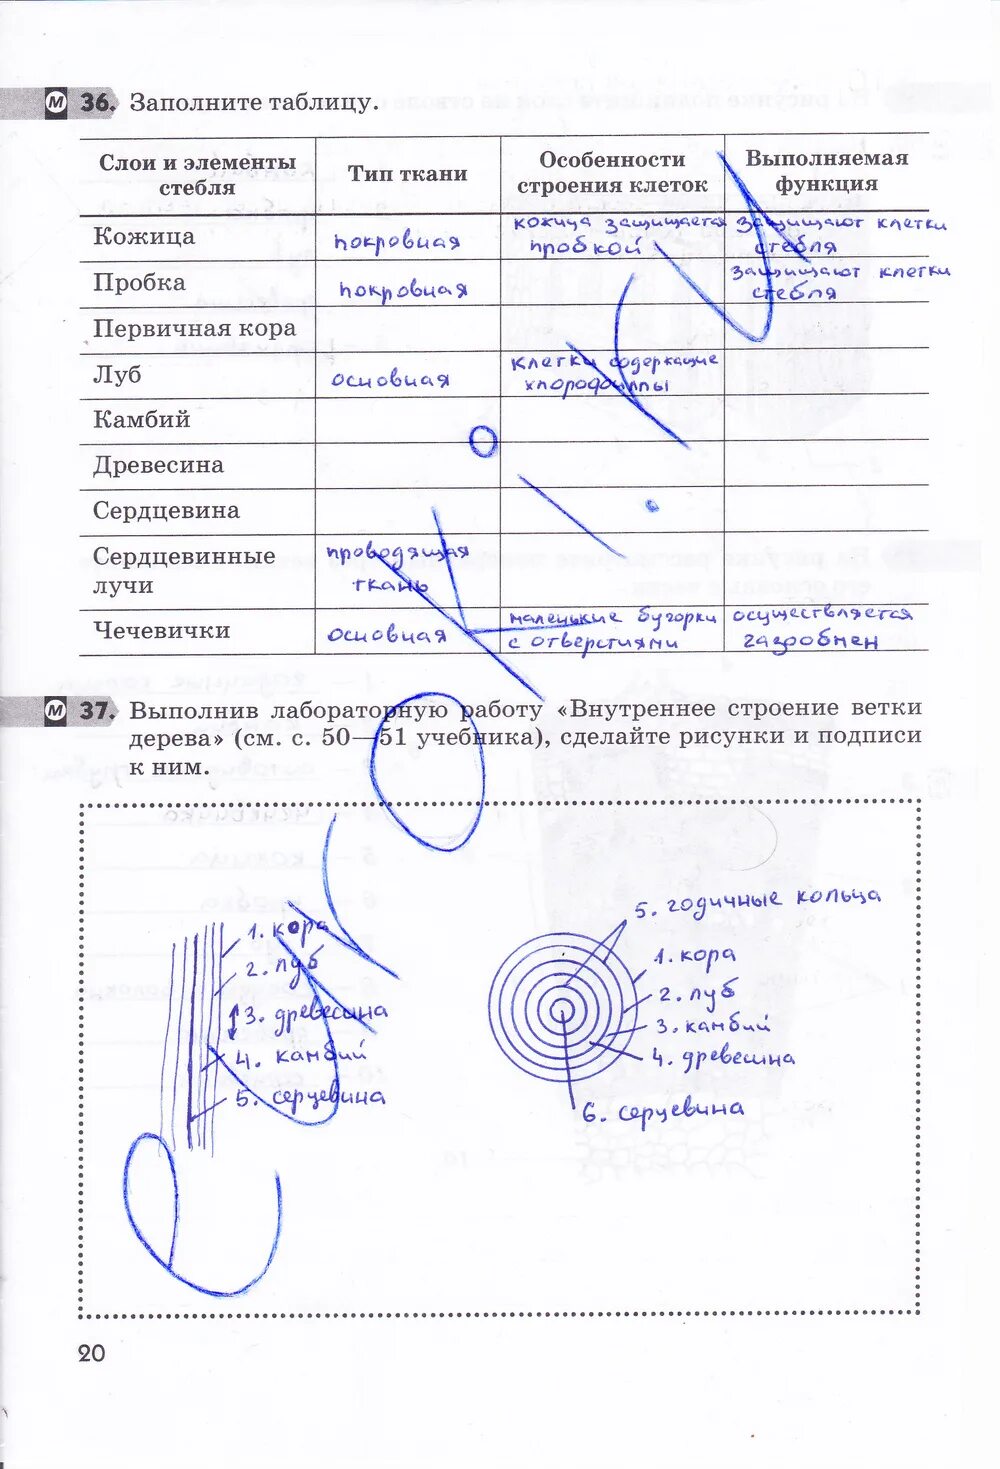 М 36. Заполните таблицу.
Слои и элементы стебля
Тип ткани
Особенности строения клеток
Выполняемая функция
Кожица
покровная
кожица защищается
пробкой
защищают клетки
стебля
Пробка
покровная
защищают клетки
стебля
Первичная кора
Луб
основная
клетки содержащие
хлорофиллы
Камбий
Древесина
Сердцевина
Сердцевинные
лучи
проводящая
ткань
Чечевички
основная
маленькие бугорки
с отверстиями
осуществляется
газообмен
М 37. Выполнив лабораторную работу «Внутреннее строение ветки
дерева» (см. с. 50—51 учебника), сделайте рисунки и подписи
к ним.
1. кора
2. луб
3. древесина
4. камбий
5. серцевина
5. годичные кольца
1. кора
2. луб
3. камбий
4. древесина
6. серцевина
20